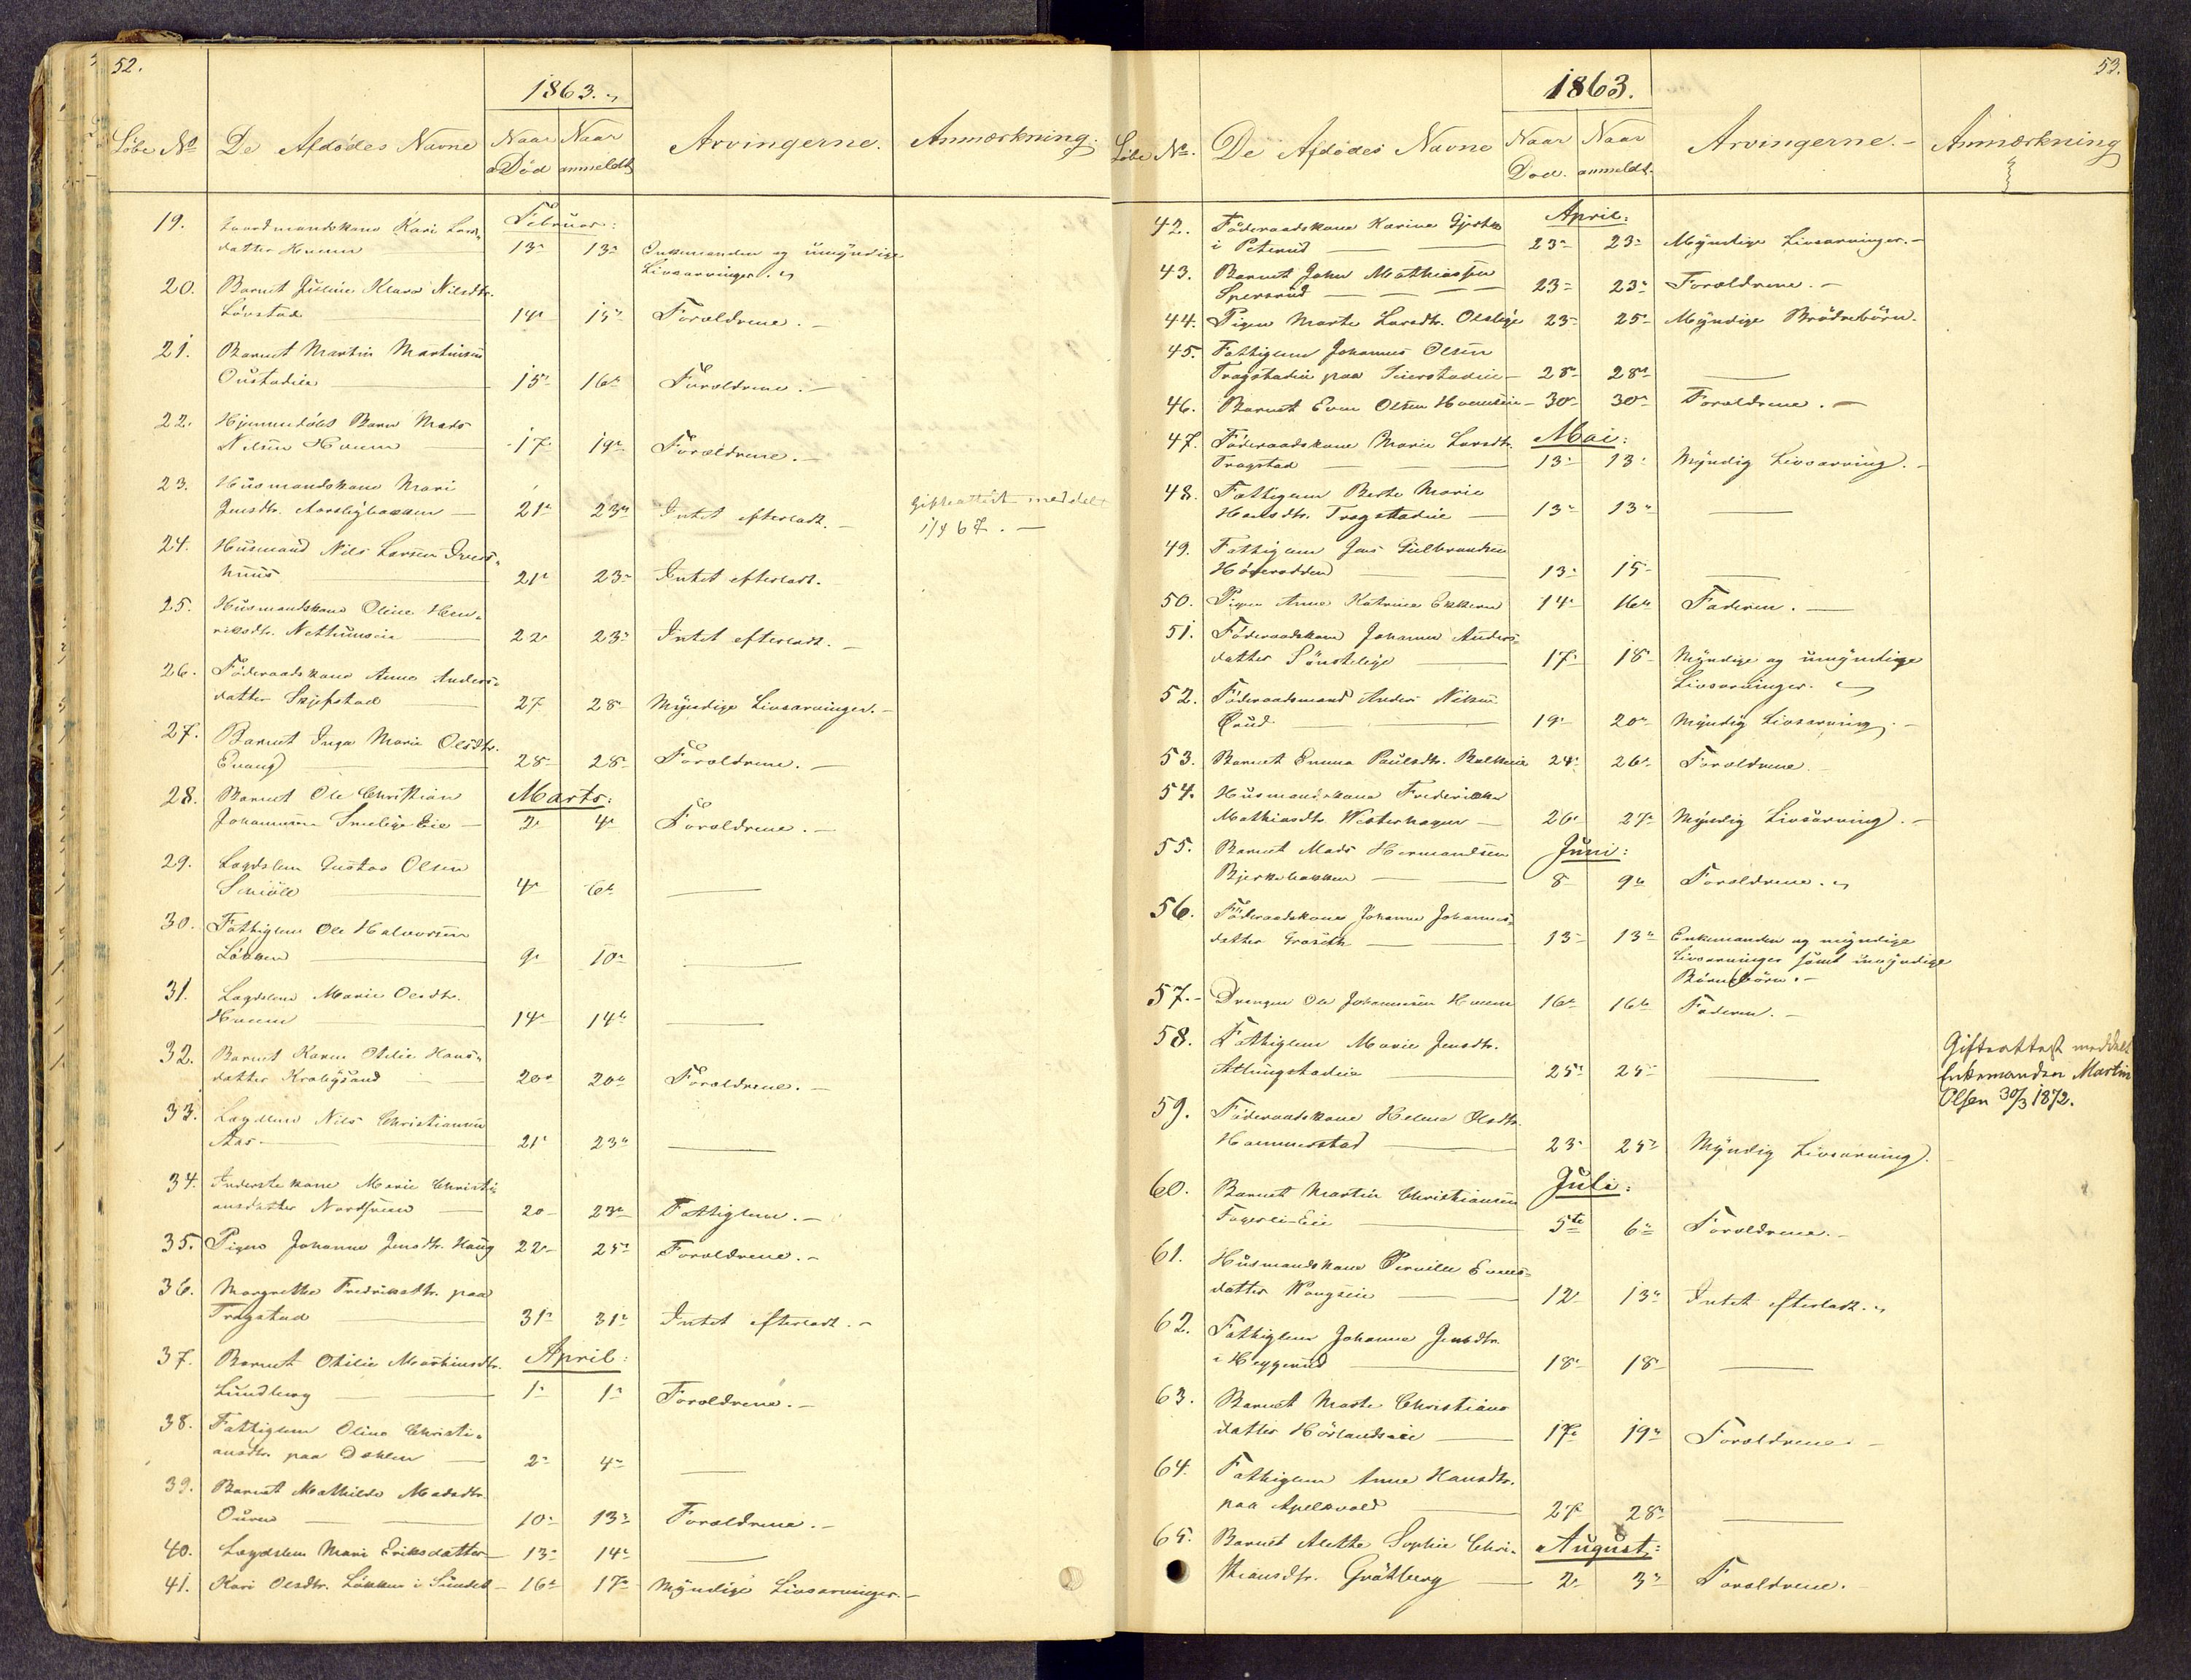 52.
1863.
Löbe No De Afdödes Navne Naar Död Naar anmeldt Arvingerne. Anmærkning.
Februar:
19. Kari Lars-
datter Huun 13 13 Enkemanden og umyndige
Livsarvinger.
20. Barnet Juline Klara Nilsdtr.
Lövstad 14 15 Forældrene.
21. Barnet Martin Martinsen
15 16 Forældrene.
22. Hjemmedöbt Barn Mads
Nilsen Huun 17 19 Forældrene.
23. Husmandskone Mari
Jensdtr. 21 23 Intet efterladt. Gifteattest meddelt
1/4 67.
24. Husmand Nils Larsen
huus 21 23 Intet efterladt.
25. Husmandskone Oline Hen-
riksdtr. 22 23 Intet efterladt.
26. Föderaadskone Anne Anders-
datter Skjefstad 27 28 Myndige Livsarvinger.
27. Barnet Inga Marie Olsdtr.
Evang 28 28 Forældrene.
28. Barnet Ole Christian Marts:
Johannesen Eie 2 4 Forældrene.
29. Lægdslem Gustav Olsen
4 6
30. Fattiglem Ole Halvorsen
Lökken 9 10
31. Lægdslem Marie Olsdtr.
Huun 14 14
32. Barnet Karen Otilie Hans-
datter 20 20 Forældrene.
33. Lægdslem Nils Christiansen
Aas 21 23
34. Inderstekone Marie Christi-
ansdatter 20 23 Fattiglem.
35. Pigen Johanne Jensdtr. Haug 22 25 Forældrene.
36. Margrethe Fredriksdtr. paa
Tragstad 31 31 Intet efterladt.
37. Barnet Otilie Mathiasdtr. April:
Lundberg 1 1 Forældrene.
38. Fattiglem Oline Christi-
ansdtr. paa Dahlen 2 4
39. Barnet Mathilde Madsdtr.
10 13 Forældrene.
40. Lægdslem Mari Eriksdatter 13 14
41. Kari Olsdtr. Lökken i Sundet 16 17 Myndige Livsarvinger.
53.
1863.
Löbe No. De Afdödes Navne Naar Död. Naar anmeldt. Arvingerne. Anmærkning
April:
42. Föderaadskone Karine
i Peterud 23 23 Myndige Livsarvinger.
43. Barnet John Mathiassen
Sperrud 23 23 Forældrene.
44. Pigen Marte Larsdtr. 23 25 Myndige Brödrebörn.
45. Fattiglem Johannes Olsen
Tragstadeie paa 28 28
46. Barnet Even Olsen 30 30 Forældrene.
47. Föderaadskone Marie Larsdtr. Mai:
Tragstad 13 13 Myndig Livsarving.
48. Fattiglem Berte Marie
Hansdtr. Tragstadeie 13 13
49. Fattiglem Jens Gulbrandsen
13 15
50. Pigen Anne Katrine 14 16 Faderen.
51. Föderaadskone Johanne Anders-
datter 17 18 Myndige og umyndige
Livsarvinger.
52. Föderaadsmand Anders Nilsen
19 20 Myndig Livsarving.
53. Barnet Emma Paulsdtr. 24 26 Forældrene
54. Husmandskone Fredrikke
Mathiasdtr. Westerhagen 26 27 Myndig Livsarving.
55. Barnet Mads Hermandsen Juni:
Bjerkebakken 8 9 Forældrene.
56. Föderaadskone Johanne Johannes-
datter 13 13 Enkemanden og myndige
Livsarvinger samt umyndige
Börnebörn.
57. Drengen Ole Johannesen Huun 16 16 Faderen.
58. Fattiglem Marie Jensdtr.
25 25 Gifteattest meddelt
Enkemanden Martin
Olsen 30/3 1872.
59. Föderaadskone Helene Olsdtr.
Hammerstad 23 25 Myndig Livsarving.
60. Barnet Martin Christiansen Juli:
Fagerli-Eie 5te 6 Forældrene.
61. Husmandskone Pernille Evens-
datter 12 13 Intet efterladt.
62. Fattiglem Johanne Jensdtr.
i Heggerud 18 18
63. Barnet Marte Christians
datter 17 19 Forældrene
64. Fattiglem Anne Hansdtr.
paa Apelsvold 27 28
65. Barnet Alethe Sophie Chri- August:
stiansdtr. Gröthberg 2 3 Forældrene.